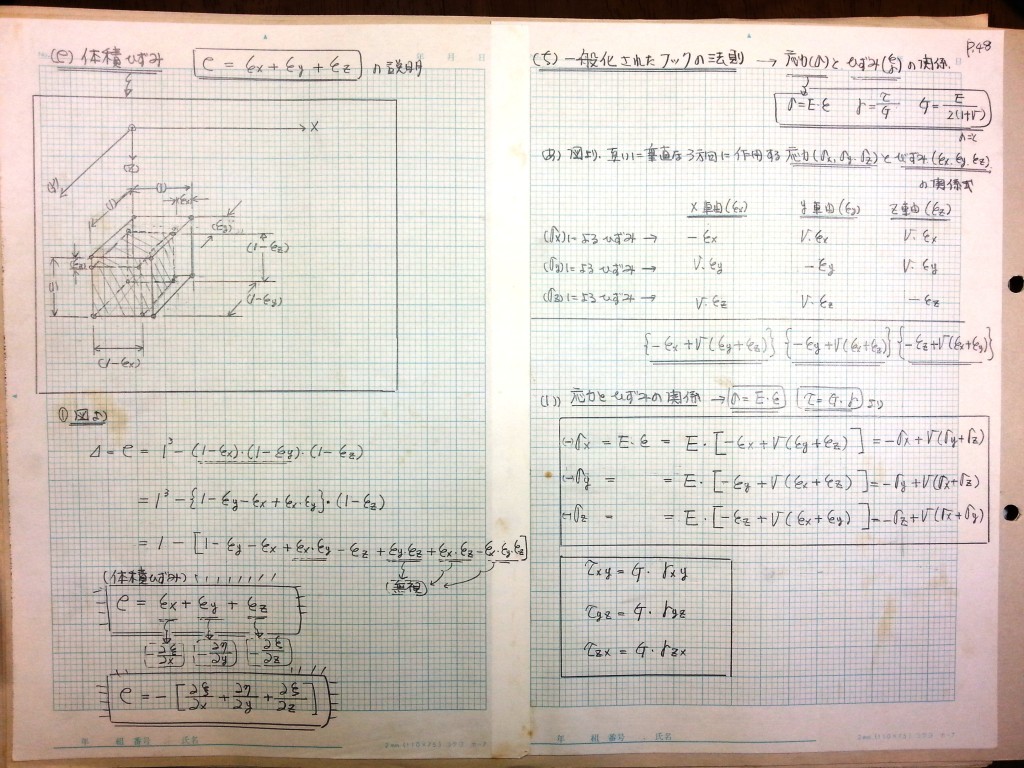 体積ひずみ e = εx + εy + εz の説明
X
(1-εz)
(1-εy)
(1-εx)
① 図より
Δ = e = 1³ - (1-εx)・(1-εy)・(1-εz)
= 1³ - {1-εy-εx+εx・εy}・(1-εz)
= 1 - [1-εy-εx+εx・εy-εz+εy・εz+εx・εz-εx・εy・εz]
無視
(体積ひずみ)
e = εx + εy + εz
-∂ξ/∂x -∂η/∂y -∂ξ/∂z
e = -[∂ξ/∂x + ∂η/∂y + ∂ξ/∂z]
年 組 番号 氏名
P.48
(ち) 一般化されたフックの法則 → 応力(σ)と ひずみ の関係
σ=E・ε γ=τ/G G=E/2(1+ν)
(あ) 図より、互いに垂直な3方向に作用する応力(σx,σy,σz)とひずみ(εx,εy,εz)
の関係式
X軸(εx) y軸(εy) z軸(εz)
(σx)によるひずみ → -εx ν・εx ν・εx
(σy)によるひずみ → ν・εy -εy ν・εy
(σz)によるひずみ → ν・εz ν・εz -εz
{-εx+ν(εy+εz)} {-εy+ν(εx+εz)} {-εz+ν(εx+εy)}
(い) 応力とひずみの関係 → σ=E・ε τ=G・γ より
(-)σx = E・ε = E・[-εx+ν(εy+εz)] = -σx+ν(σy+σz)
(-)σy = = E・[-εy+ν(εx+εz)] = -σy+ν(σx+σz)
(-)σz = = E・[-εz+ν(εx+εy)] = -σz+ν(σx+σy)
τxy = G・γxy
τyz = G・γyz
τzx = G・γzx
年 組 番号 氏名